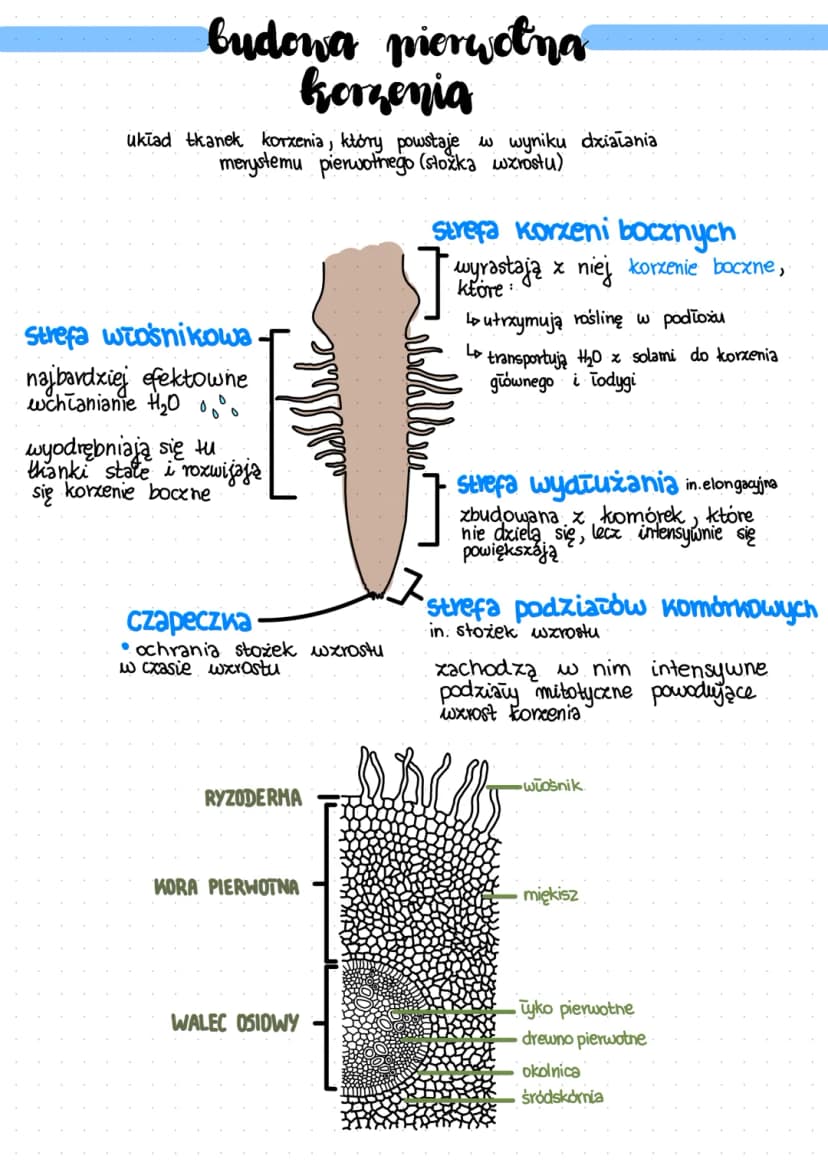 budowa pierwotna
korzenia
układ tkanek korzenia, który powstaje w wyniku działania
merystemu pierwotnego (stożka wzrostu)
strefa korzeni bocznych
wyrastają z niej korzenie boczne,
które:
↳ utrzymują roślinę w podłożu
↳ transportują H₂O z solami do korzenia
głównego i łodygi
strefa włośnikowa
najbardziej efektowne
wchłanianie H₂O
wyodrębniają się tu
tkanki stałe i rozwijają
się korzenie boczne
strefa wydłużania in. elongacyjna
zbudowana z komórek, które
nie dzielą się, lecz intensywnie się
powiększają
czapeczka
• ochrania stożek wzrostu
w czasie wzrostu
strefa podziałów komórkowych
in. stożek wzrostu
zachodzą w nim intensywne
podziały mitotyczne powodujące
wzrost korzenia
RYZODERMA
włośnik
KORA PIERWOTNA
miękisz
WALEC OSIOWY
łyko pierwotne
drewno pierwotne
okolnica
śródskórnia